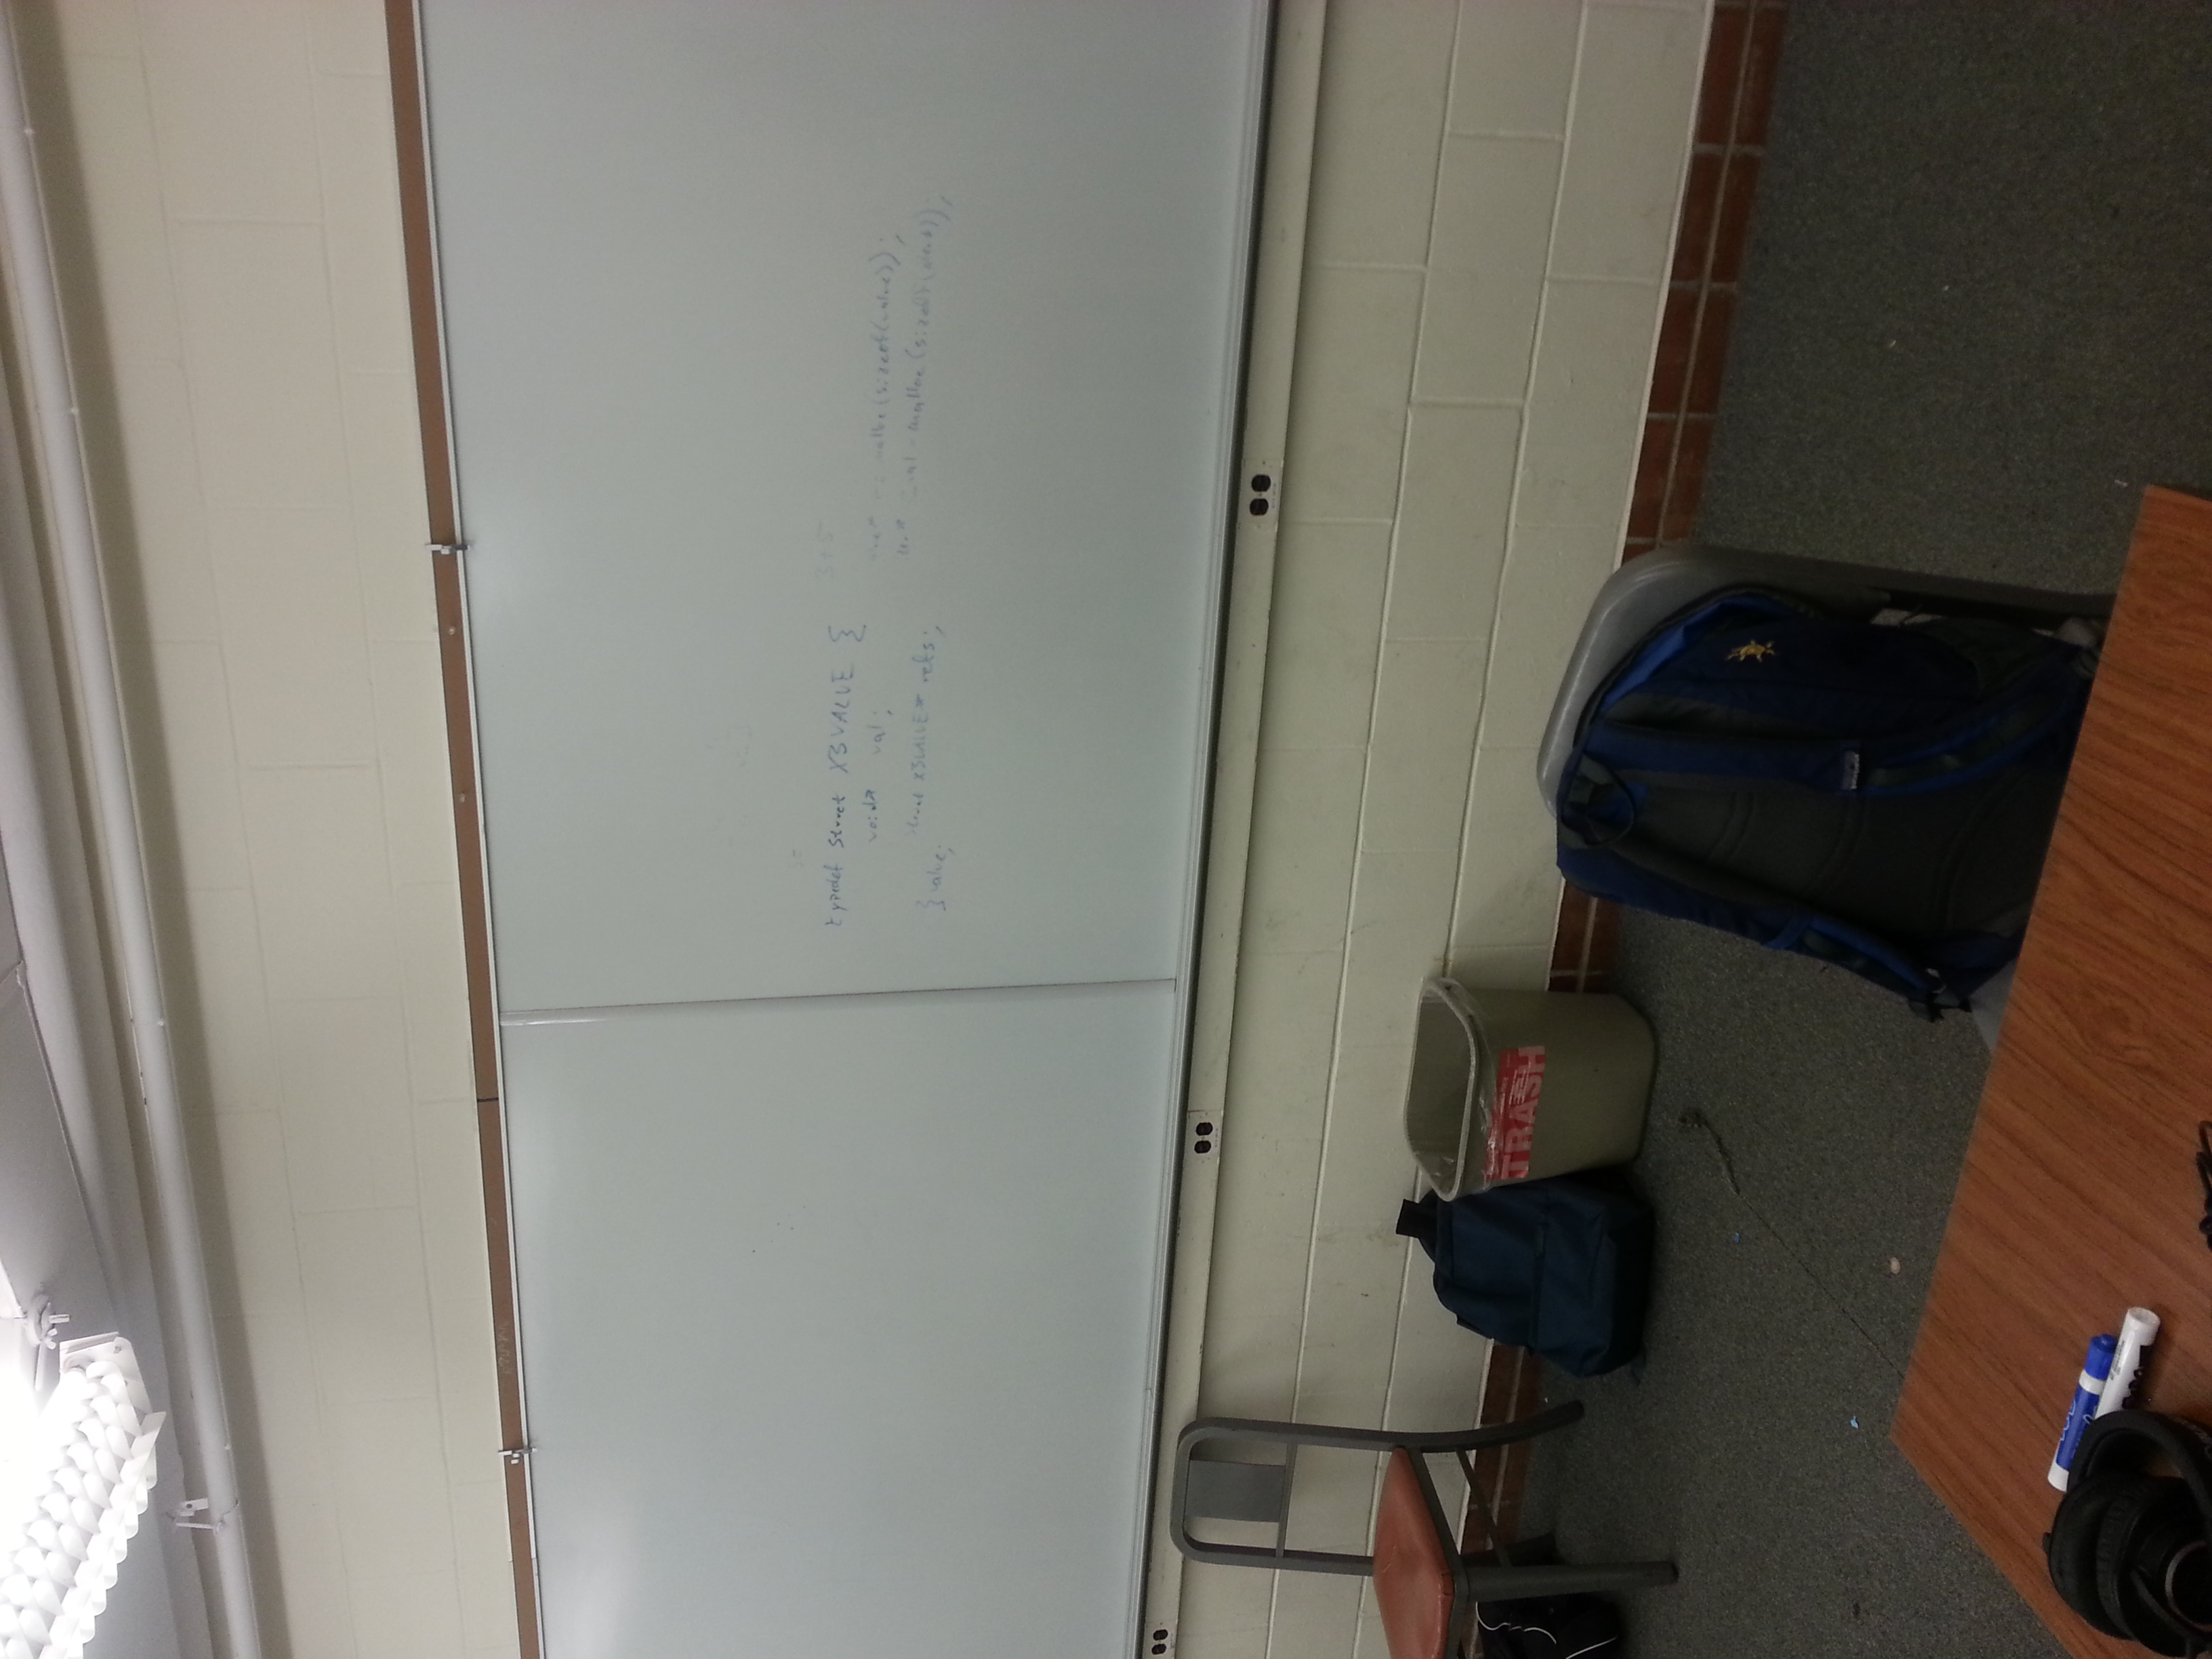 typedef struct X3VALUE {
void* val;
struct X3VALUE* refs;
} value;
3+5
malloc(sizeof(value));
malloc(sizeof(
TRASH